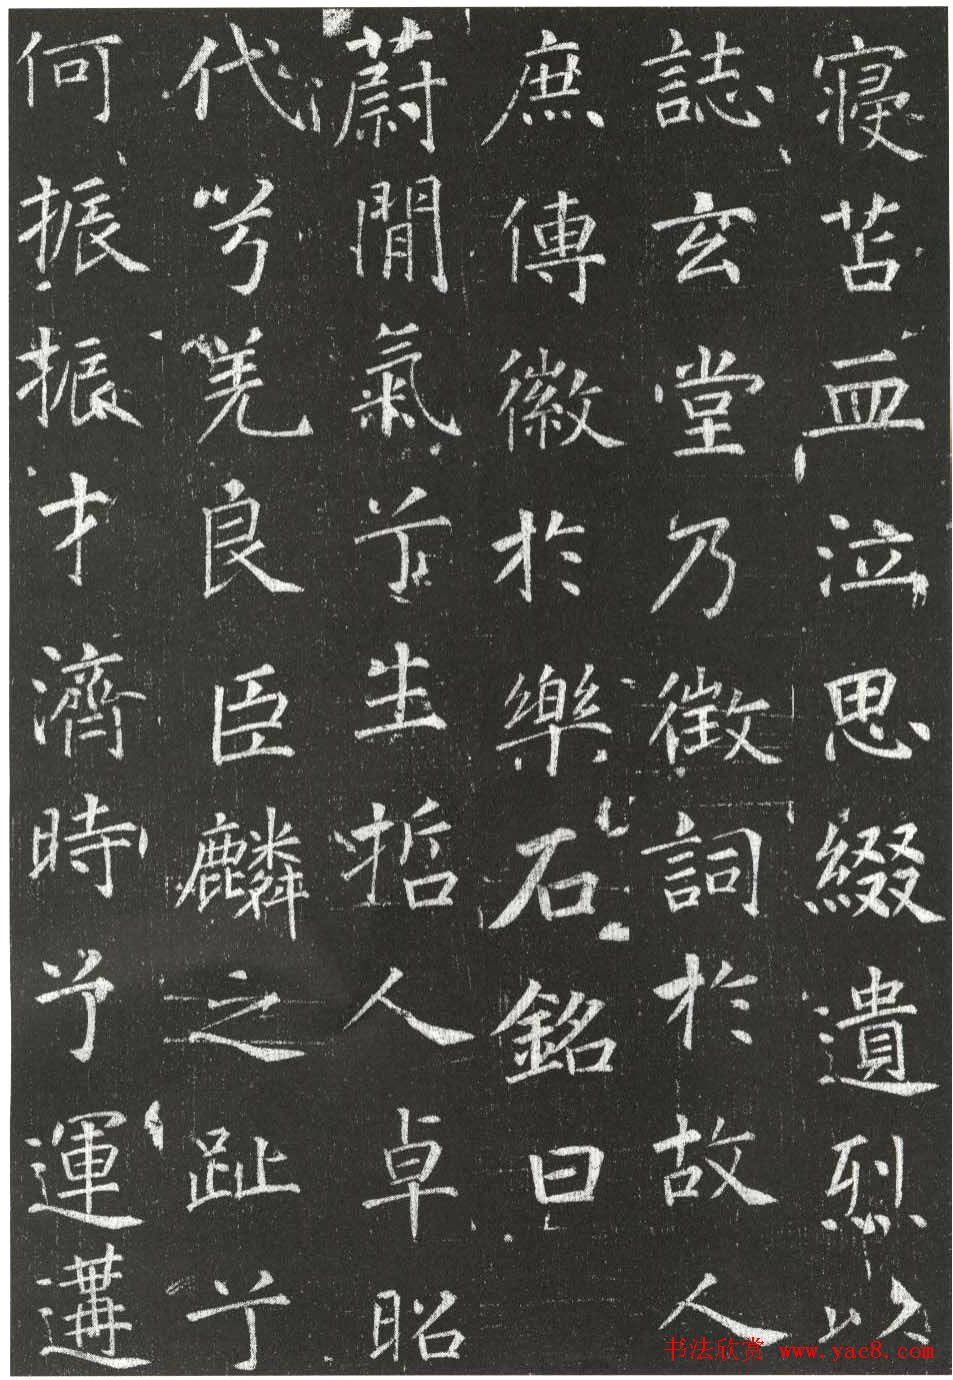 寝苫血泣思綴遺烈以
誌玄堂乃徵詞於故人
庶傳徽於樂石銘曰
蔚閒氣兮生哲人卓昭
代兮羌良臣麟之趾兮
何振振才濟時兮運遘
书法欣赏 www.yac8.com